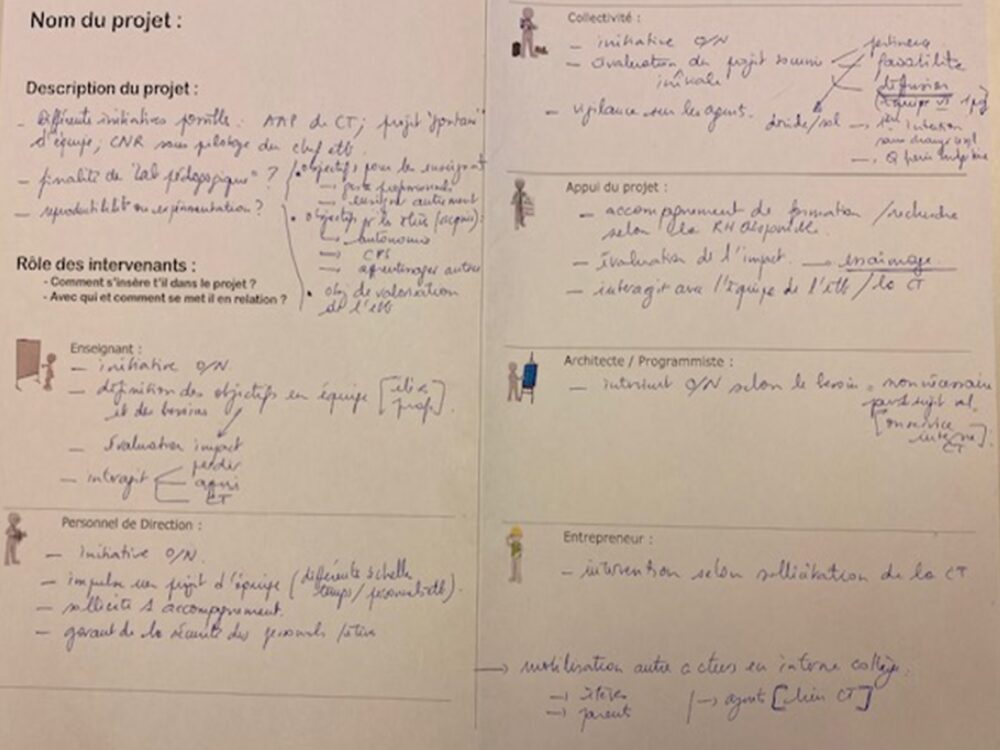 Nom du projet :
Description du projet :
- Différente initiatives possible : AAP de CT ; projet "spontané"
d'équipe ; CNR sous pilotage du chef etb
- finalité de "lab pédagogique" ?
- reproductibilité ou expérimentation ?
• objectifs pour les enseignants
→ geste professionnels
→ enseigner autrement
• objectifs pr les élèves (acquis) :
→ autonomie
→ CPS
→ apprentissages autres
• obj de valorisation
de l'etb
Rôle des intervenants :
- Comment s'insère t'il dans le projet ?
- Avec qui et comment se met il en relation ?
Enseignant :
- initiative O/N
- définition des objectifs en équipe [élèves
prof].
et des besoins
- Évaluation impact
- interagit
perdir
appui
CT
Personnel de Direction :
- Initiative O/N.
- impulse un projet d'équipe (différente échelle
temps/personnels/etb).
- sollicite 1 accompagnement.
- garant de la sécurité des personnels /élèves
Collectivité :
- initiative O/N
- évaluation du projet soumis
initiale
pertinence
faisabilité
diffusion
- vigilance sur les agents.
Appui du projet :
- accompagnement de formation / recherche
selon la RH disponible.
- évaluation de l'impact. → essaimage.
- interagit avec l'équipe de l'etb / la CT
Architecte / Programmiste :
- intervient O/N selon le besoin = non nécessaire
[ou service
interne]
CT
Entrepreneur :
- intervention selon sollicitation de la CT
→ mobilisation autre acteurs en interne collège,
→ élèves
→ parents
→ agents [lien CT]